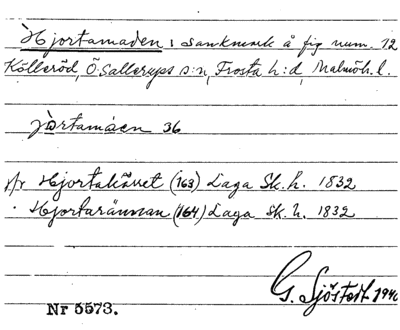 Hjortamaden, sankmark å fig num. 12
Kölleröd, Ö. Sallerups s:n, Frosta h:d, Malmöh. l.
36
Hjortakärret (163) Laga Sk. h. 1832
Hjortarännan (164) Laga Sk. h. 1832
G. Sjöstedt 194
Nr 5573.